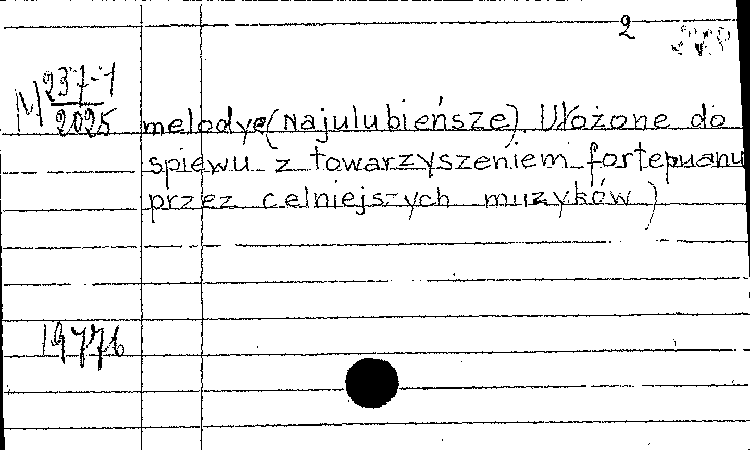 2
M 237-1
2025
melodye (Najulubieńsze). Ułożone do
spiewu z towarzyszeniem fortepuanu
przez celniejszych muzyków)
19776